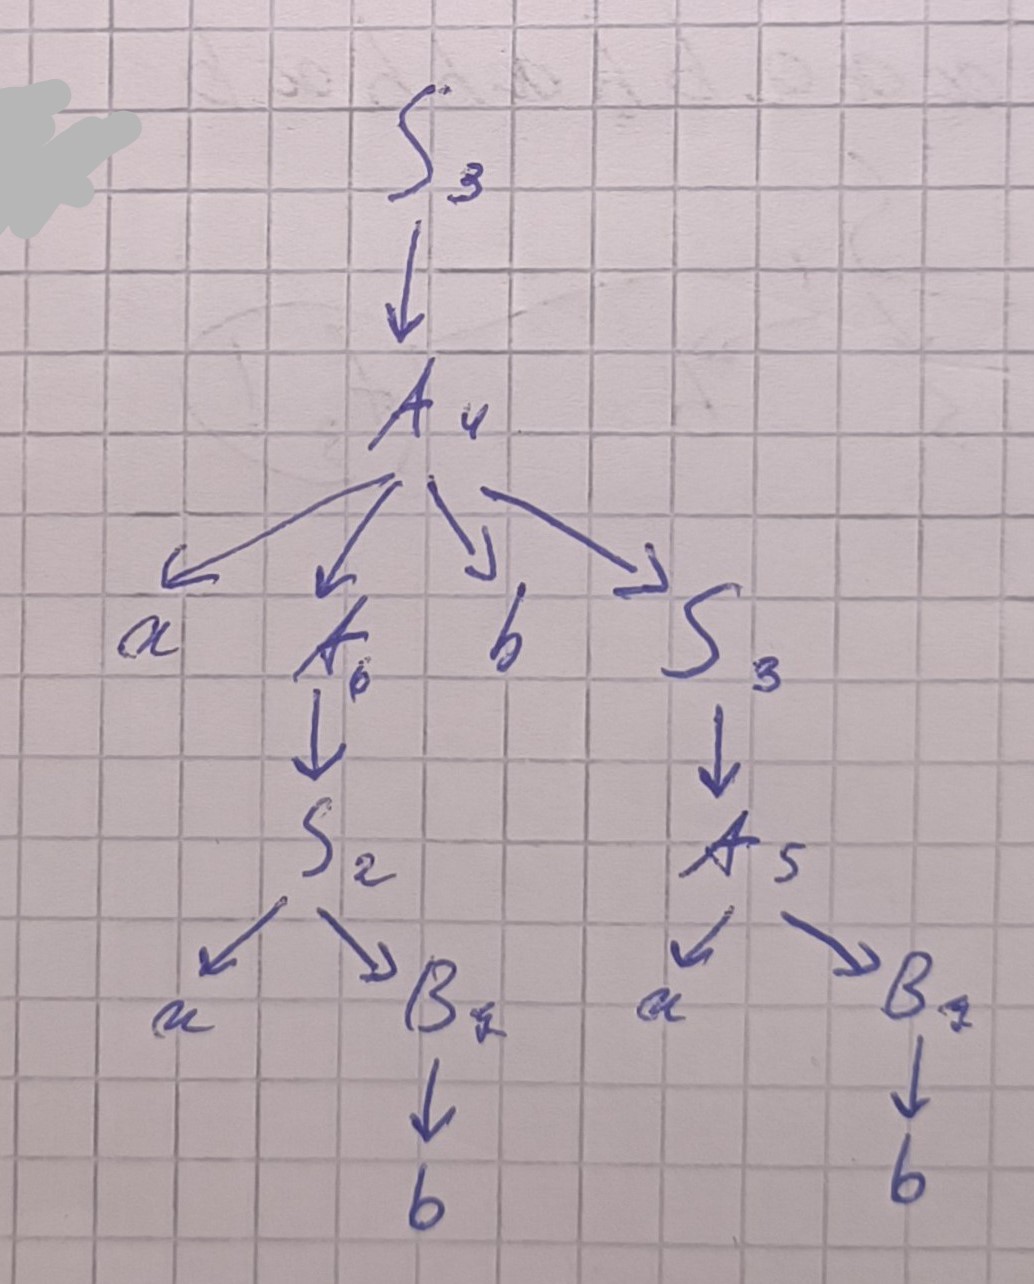 S 3
A 4
a A 6 b S 3
S 2 A 5
a B 7 a B 7
b b